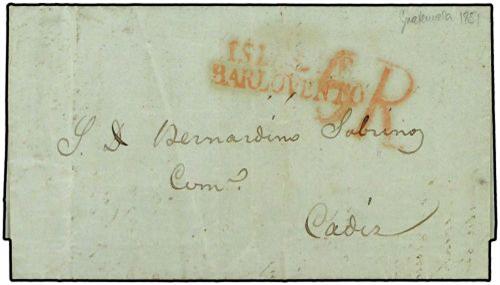 Guatemala 1851
ISL
BARLOVENTO
5 R
S. D. Bernardino Sobrino
Com.º
Cádiz